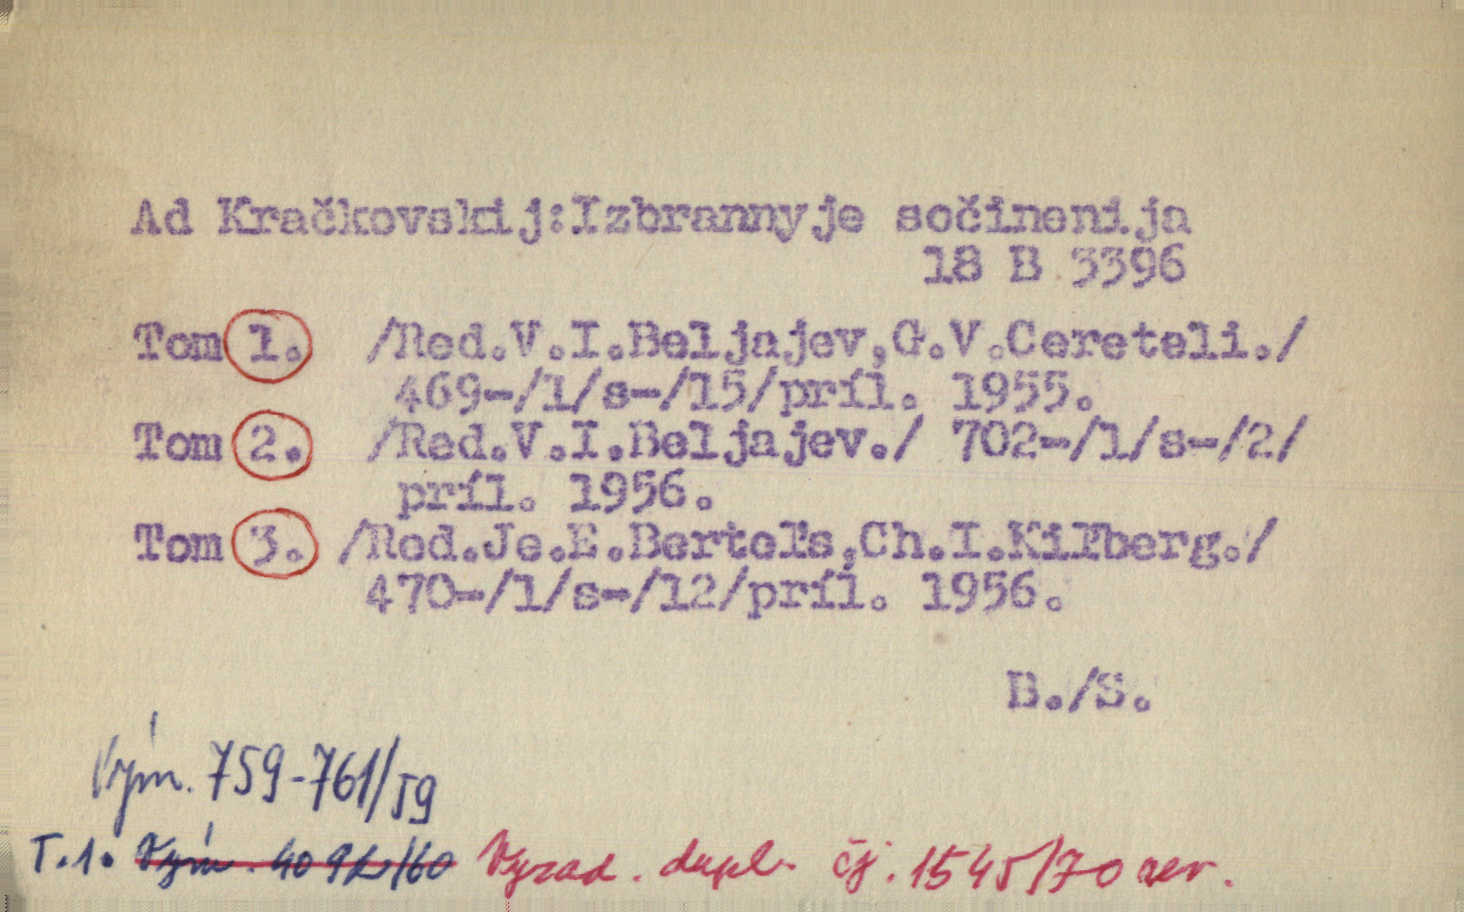 Ad Kračkovskij:Izbrannyje sočinenija
18 B 3396
Tom 1. /Red.V.I.Beljajev,G.V.Cereteli./
469-/1/s-/15/príl. 1955.
Tom 2. /Red.V.I.Beljajev./ 702-/1/s-/2/
príl. 1956.
Tom 3. /Red.Je.E.Berteľs,Ch.I.Kiľberg./
470-/1/s-/12/príl. 1956.
B./S.
Vým. 759-761/59
T.1. Vým. /60 Vyrad. dupl. čj. 1545/70 rev.